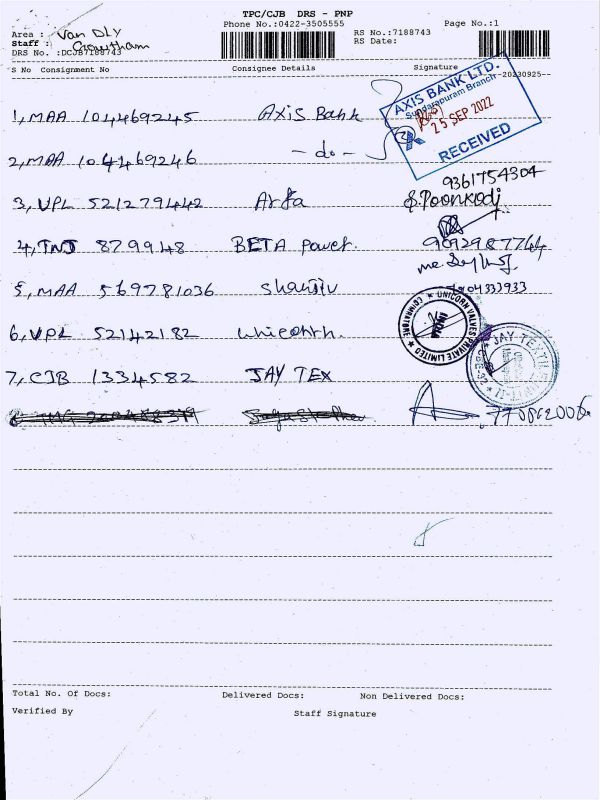 TPC/CJB DRS - PNP
Phone No.:0422-3505555
Page No.:1
RS No.:7188743
RS Date:
Area : Van DLY
Staff : Gowtham
DRS No. :DCJB7188743
S No Consignment No Consignee Details Signature
--20230925--
1, MAA 104469245 Axis Bank
AXIS BANK LTD.
Sundarapuram Branch
25 SEP 2022
RECEIVED
2, MAA 104469246 - do -
9361754304
3, VPL 521279442 Arfa S.Poonkodi
4, TNJ 879948 BETA Power.
5, MAA 569781036
6, VPL 52142182
UNICORN VALVES PRIVATE LIMITED * COIMBATORE *
INDIA
7, CJB 1334582 JAY TEX
JAY TEXTILE
Total No. Of Docs: Delivered Docs: Non Delivered Docs:
Verified By Staff Signature